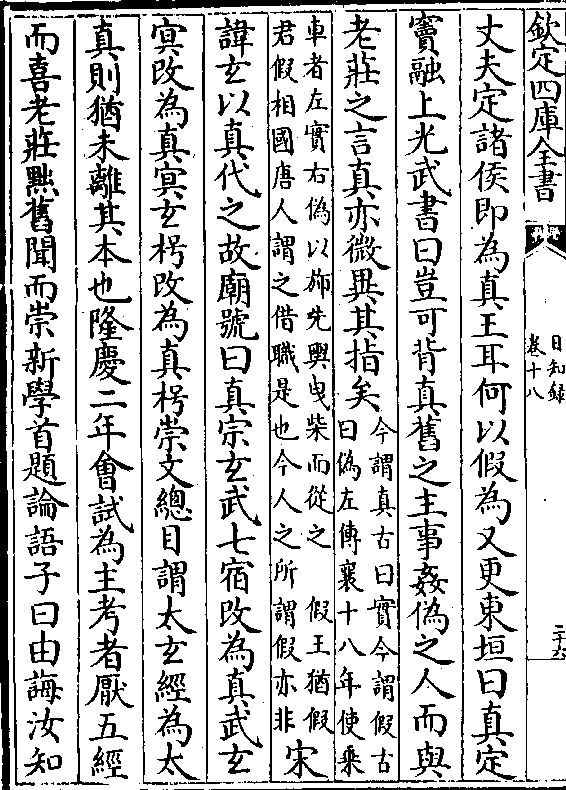 欽定四庫全書
日知錄
卷十八
二十六
丈夫定諸侯即為真王耳何以假為又更東垣曰真定
竇融上光武書曰豈可背真舊之主事姦偽之人而與
老莊之言真亦微異其指矣今謂真古曰實今謂假古
曰偽左傳襄十八年使乗
車者左實右偽以斾先輿曳柴而從之 假王猶假
君假相國唐人謂之借職是也今人之所謂假亦非宋
諱玄以真代之故廟號曰真宗玄武七宿改為真武玄
㝠改為真㝠玄枵改為真枵崇文總目謂太玄經為太
真則猶未離其本也隆慶二年會試為主考者厭五經
而喜老莊黜舊聞而崇新學首題論語子曰由誨汝知